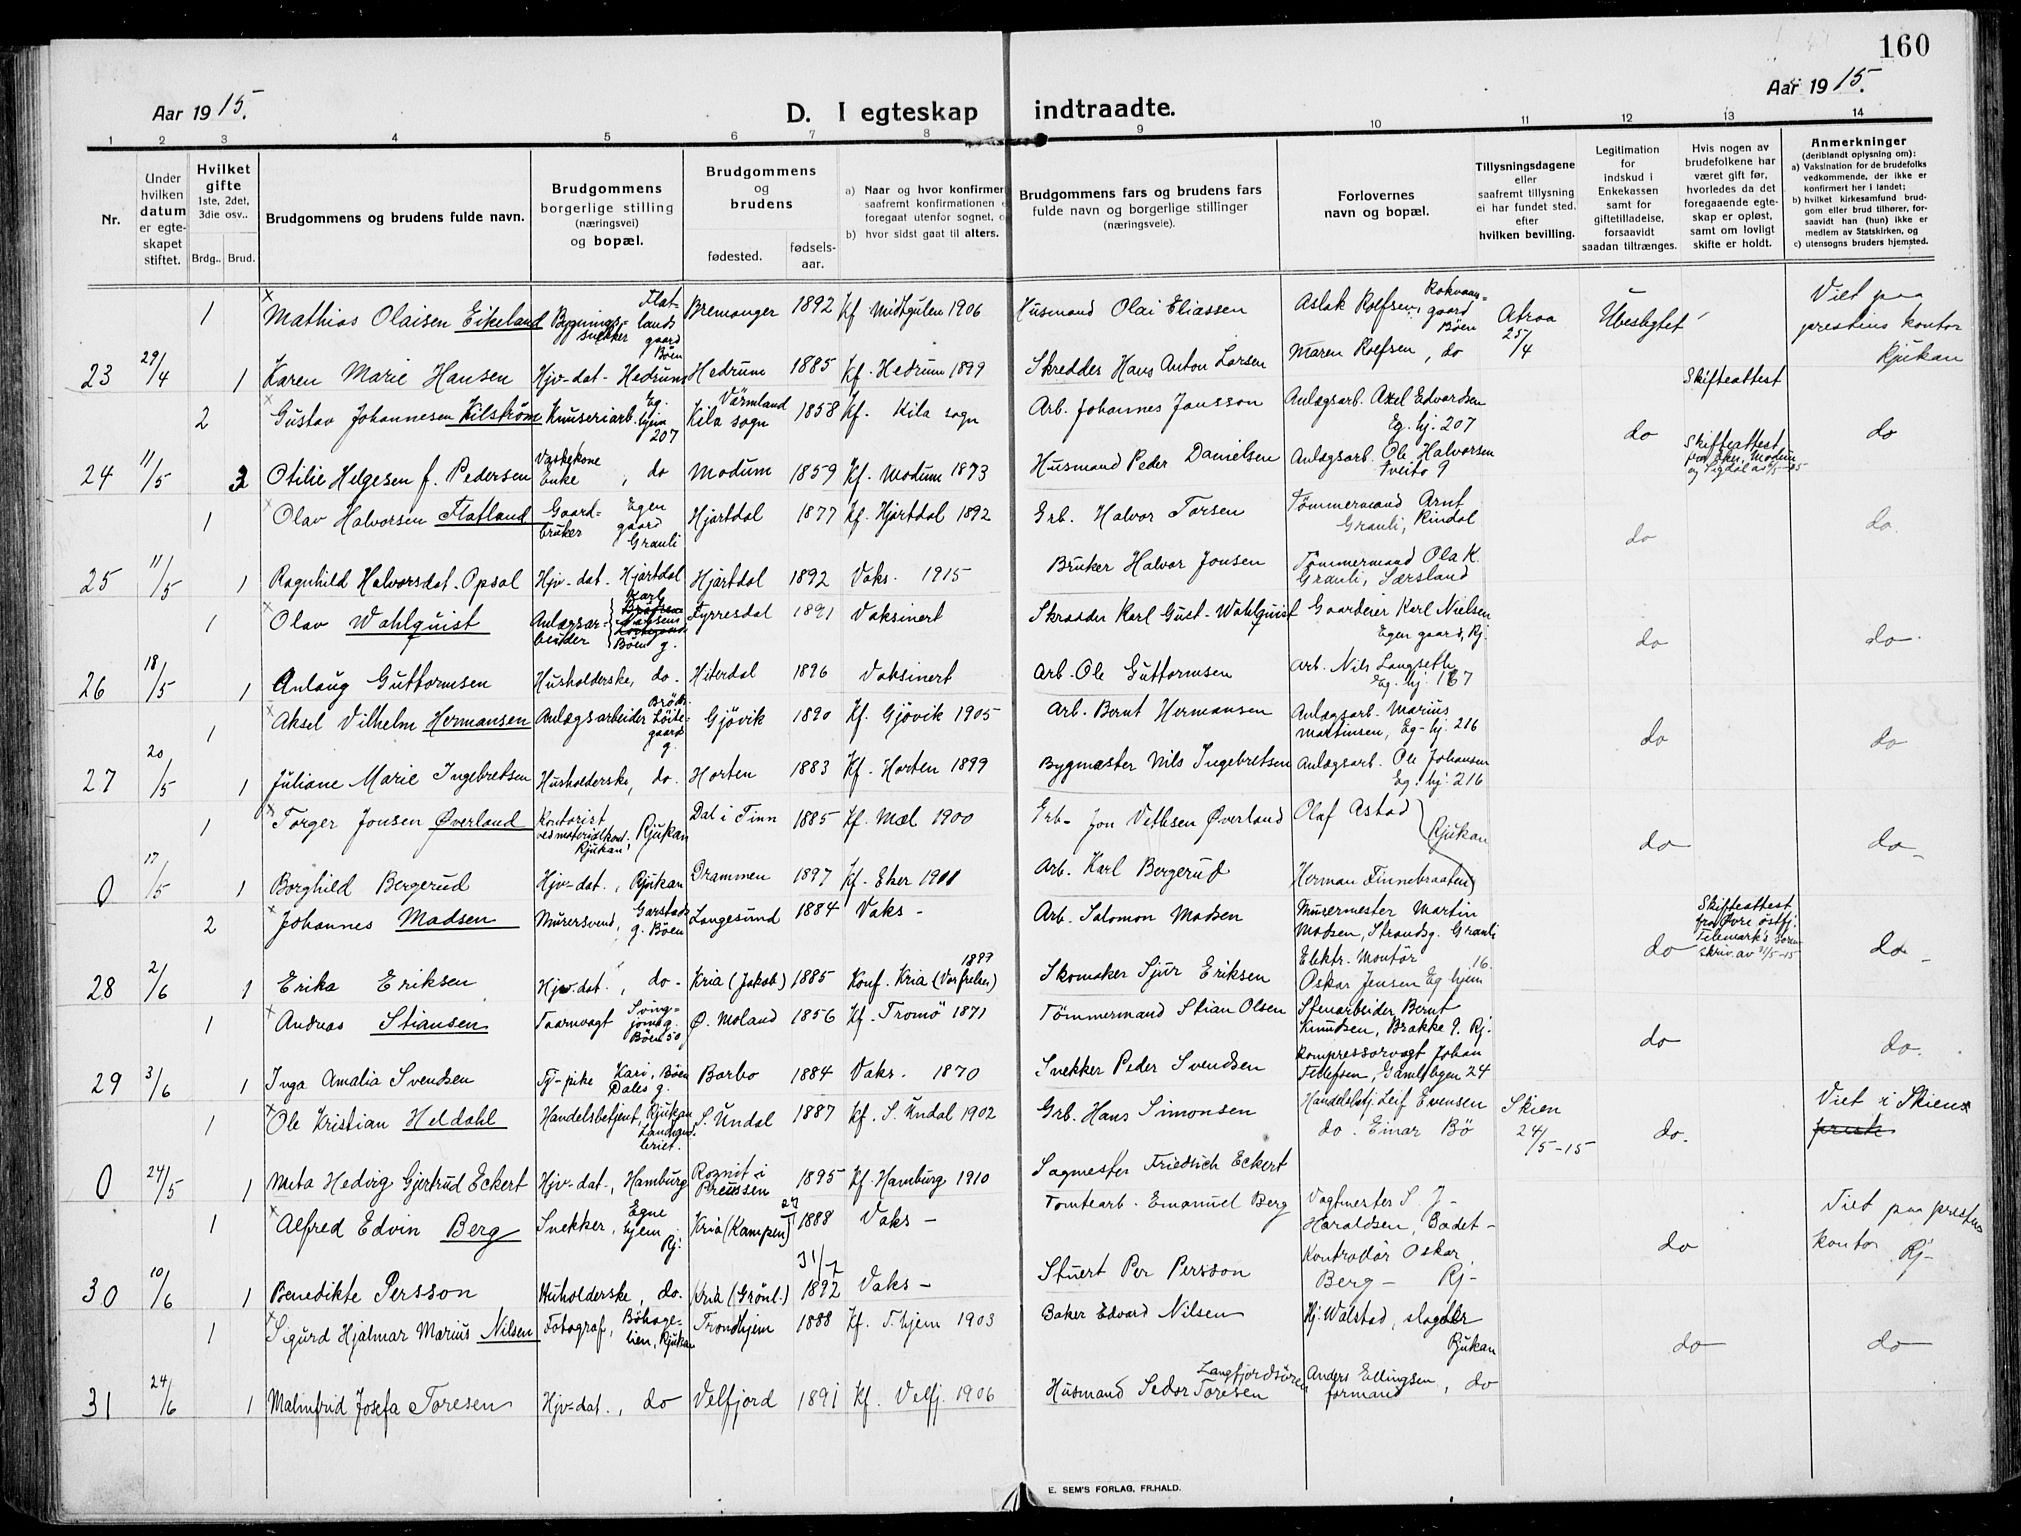 160
Aar 1915.
D. I egteskap indtraadte.
Aar 1915.
1 2 3 4 5 6 7 8 9 10 11 12 13 14
Nr.
Under hvilken datum er egte-skapet stiftet.
Hvilket gifte 1ste, 2det, 3die osv..
Brdg.. Brud.
Brudgommens og brudens fulde navn.
Brudgommens borgerlige stilling (næringsvei) og bopæl.
Brudgommens og brudens
fødested.
fødsels-aar.
a) Naar og hvor konfirmer
saafremt konfirmationen e
foregaat utenfor sognet, o
b) hvor sidst gaat til alters.
Brudgommens fars og brudens fars
fulde navn og borgerlige stillinger
(næringsveie).
Forlovernes
navn og bopæl.
Tillysningsdagene
eller
saafremt tillysning
ei har fundet sted.
efter
hvilken bevilling.
Legitimation
for
indskud i
Enkekassen
samt for
giftetilladelse,
forsaavidt
saadan tiltrænges.
Hvis nogen av
brudefolkene har
været gift før,
hvorledes da det
foregaaende egte-
skap er opløst,
samt om lovligt
skifte er holdt.
Anmerkninger
(deriblandt oplysning om):
a) Vaksination for de brudefolks
vedkommende, der ikke er
konfirmert her i landet;
b) hvilket kirkesamfund brud-
gom eller brud tilhører, for-
saavidt han (hun) ikke er
medlem av Statskirken, og
c) utensogns bruders hjemsted.
1 Mathias Olaisen Eikeland Bygnings-snekker Flat-lands gaard Böen Bremanger 1892 Kf Midtgulen 1906 Husmand Olai Eliassen Aslak Rolfsen, gaard Böen Atraa 25/4 Ubeslegtet Viet paa prestens kontor Rjukan
23 29/4 1 Karen Marie Hansen Hjv-dat- Hedrum Hedrum 1885 Kf. Hedrum 1899 Skredder Hans Anton Larsen Maren Rolfsen, do
2 Gustav Johannesen Kilström Knuseriarb. Eg. hjem 207 Kila sogn Värmland 1858 Kf. Kila sogn Arb. Johannes Jansson Anlægsarb. Axel Edvardsen Eg. hj. 207 do Skifteattest do
24 11/5 3 Otilie Helgesen f. Pedersen Vaskekone Enke, do Modum 1859 Kf. Modum 1873 Husmand Peder Danielsen Anlægsarb. Ole Halvorsen Tveito 9 Skifteattest fra Eker, Modum og Sigdal
1 Olav Halvorsen Flatland Gaard-bruker Egen gaard Grauli Hjartdal 1877 Kf. Hjartdal 1892 Grb. Halvor Torsen Tömmermand Arnt Grauli, Rindal do do.
25 11/5 1 Ragnhild Halvorsdat. Opsal Hjv-dat. Hjartdal Hjartdal 1892 Vaks. 1915 Bruker Halvor Jonsen Tömmermand Ola K. Grauli, Særsland
1 Olav Wahlquist Anlægsar-beider Karl Böen g. Fyrresdal 1891 Vaksinert Skradder Karl Gust. Wahlquist Gaardeier Karl Nielsen Egen gaard, Rj. do do.
26 18/5 1 Anlaug Guttormsen Husholderske, do. Hiterdal 1896 Vaksinert Arb. Ole Guttormsen Arb. Nils Langseth Eg. hj. 167
1 Aksel Vilhelm Hermansen Anlægsarbeider Gjövik 1890 Kf. Gjövik 1905 Arb. Bernt Hermansen Anlægsarb. Marius Martinsen, Eg-hj. 216 do do
27 20/5 1 Juliane Marie Ingebretsen Husholderske, do. Horten 1883 Kf. Horten 1899 Bygmester Nils Ingebretsen Anlægsarb. Ole Johansen Eg. hj. 216
1 Torger Jonsen Øverland Kontorist ved materialkont. Rjukan, Rjukan Dal i Tinn 1885 Kf. Mæl 1900 Grb. Jon Øverland Olaf Astad Rjukan do do
0 17/5 1 Borghild Bergerud Hjv-dat., Rjukan Drammen 1897 Kf. Eker 1911 Arb. Karl Bergerud Herman Finnebraaten
2 Johannes Madsen Murersvend, Garstads g. Böen Langesund 1884 Vaks- Arb. Salomon Madsen Murermester Martin Madsen, Strandsg. Grauli do Skifteattest fra Øvre östfj. Telemark's Soren-skriv. av do
28 2/6 1 Erika Eriksen Hjv-dat., do- Kria (Jakob) 1885 Konf. Kria (Varfrelser) Skomaker Sjur Eriksen Elektr. Montör Oskar Jensen Eg hjem 16.
1 Andreas Stiansen Taarnvagt Böen 50 Ø. Moland 1856 Kf. Tromö 1871 Tömmermand Stian Olsen Stenarbeider Bernt Knudsen, Brakke 9. Rj. do do.
29 3/6 1 Inga Amalia Svendsen Tj-pike Kari Dales g. Böen Barbo 1884 Vaks. 1870 Snekker Peder Svendsen Kompressorvagt Johan Tellefsen, Gamlebyen 24
1 Ole Kristian Heldahl Handelsbetjent, Rjukan S. Undal 1887 Kf. S. Undal 1902 Grb. Hans Simonsen Handelsbtj. Leif Evensen do. Einar Bö Skien 24/5-15 do. Viet i Skien
0 24/5 1 Meta Hedvig Gjertrud Eckert Hjv-dat., Hamburg Rognit i Preussen 1895 Kf. Hamburg 1910 Sagmester Friedrich Eckert
1 Alfred Edvin Berg Snekker, Egne hjem Rj. Kria (Kampen) 1888 Vaks- Tomtearb. Emanuel Berg Vagtmester S. J- Haraldsen, Badet- do Viet paa prestens kontor Rj-
30 10/6 1 Benedikte Persson Huholderske, do. Kria (Grönl.) 31/7 1892 Vaks- Stuert Per Persson Kontrolör Oskar Berg- Rj-
1 Sigurd Hjalmar Marius Nilsen Fotograf, Böhage-lien, Rjukan Trondhjem 1888 Kf. T.hjem 1903 Baker Edvard Nilsen Hj. Walstad, slagter Rjukan do do
31 24/6 1 Malmfrid Josefa Toresen Hjv-dat., do Velfjord 1891 Kf. Velfj. 1906 Husmand Sedor Toresen Langfjordsören Anders Ellingsen formand, do
E. SEM'S FORLAG, FR.HALD.